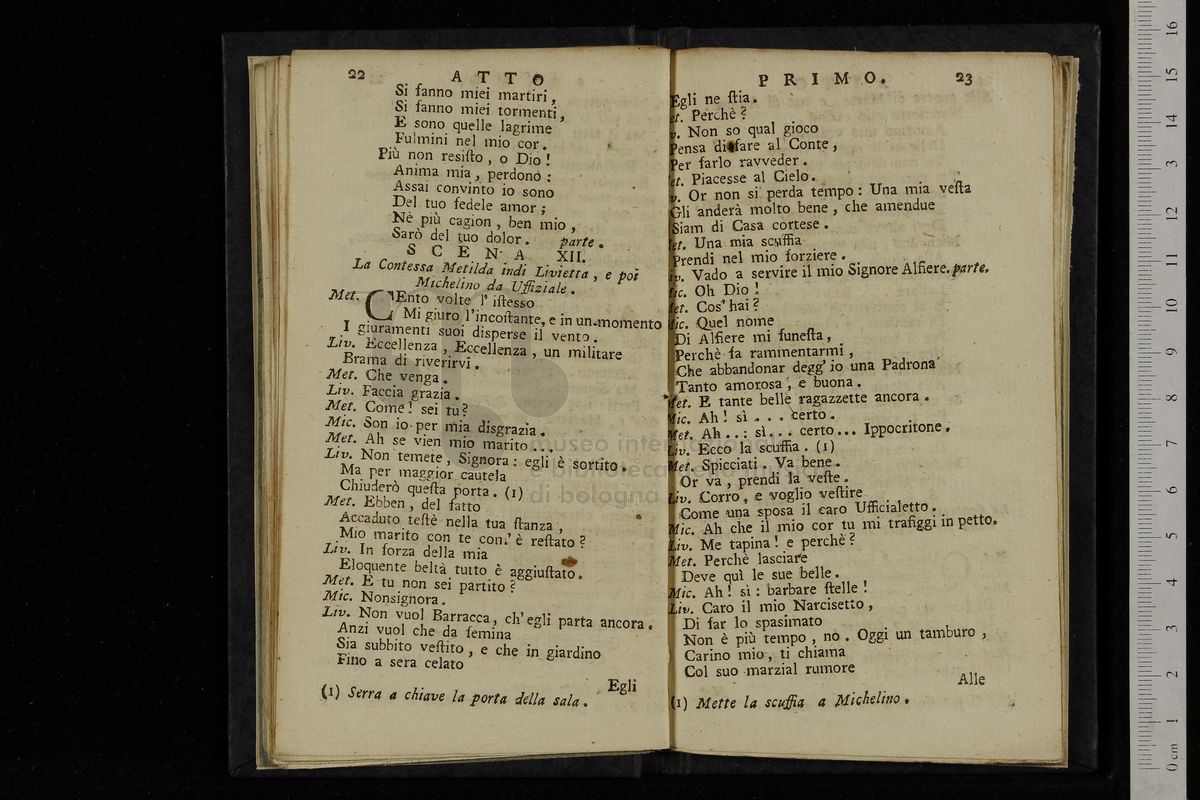 22 ATTO
Si fanno miei martiri,
Si fanno miei tormenti,
E sono quelle lagrime
Fulmini nel mio cor.
Più non resiſto, o Dio!
Anima mia, perdono:
Assai convinto io sono
Del tuo fedele amor;
Nè più cagion, ben mio,
Sarò del tuo dolor. parte.
SCENA XII.
La Contessa Metilda indi Livietta, e poi
Michelino da Uffiziale.
Met. CEnto volte l' iſtesso
Mi giuro l'incoſtante, e in un momento
I giuramenti suoi disperse il vento.
Liv. Eccellenza, Eccellenza, un militare
Brama di riverirvi.
Met. Che venga.
Liv. Faccia grazia.
Met. Come! sei tu?
Mic. Son io per mia disgrazia.
Met. Ah se vien mio marito...
Liv. Non temete, Signora: egli è sortito.
Ma per maggior cautela
Chiuderò queſta porta. (1)
Met. Ebben, del fatto
Accaduto teſtè nella tua ſtanza,
Mio marito con te com' è reſtato?
Liv. In forza della mia
Eloquente beltà tutto è aggiuſtato.
Met. E tu non sei partito?
Mic. Nonsignora.
Liv. Non vuol Barracca, ch' egli parta ancora.
Anzi vuol che da femina
Sia subbito veſtito, e che in giardino
Fino a sera celato
Egli
(1) Serra a chiave la porta della sala.
PRIMO. 23
Egli ne ſtia.
et. Perchè?
v. Non so qual gioco
Pensa di fare al Conte,
Per farlo ravveder.
et. Piacesse al Cielo.
v. Or non si perda tempo: Una mia veſta
Gli anderà molto bene, che amendue
Siam di Casa cortese.
et. Una mia scuffia
Prendi nel mio forziere.
iv. Vado a servire il mio Signore Alfiere. parte.
ic. Oh Dio!
et. Cos' hai?
ic. Quel nome
Di Alfiere mi funeſta,
Perchè fa rammentarmi,
Che abbandonar degg' io una Padrona
Tanto amorosa, e buona.
Met. E tante belle ragazzette ancora.
Mic. Ah! sì... certo.
Met. Ah..: sì... certo... Ippocritone.
Liv. Ecco la scuffia. (1)
Met. Spicciati. Va bene.
Or va, prendi la veſte.
Liv. Corro, e voglio veſtire
Come una sposa il caro Ufficialetto.
Mic. Ah che il mio cor tu mi trafiggi in petto.
Liv. Me tapina! e perchè?
Met. Perchè lasciare
Deve quì le sue belle.
Mic. Ah! sì: barbare ſtelle!
Liv. Caro il mio Narcisetto,
Di far lo spasimato
Non è più tempo, no. Oggi un tamburo,
Carino mio, ti chiama
Col suo marzial rumore
Alle
(1) Mette la scuffia a Michelino.
museo inter
e bibliote
di bologna
0 cm 1 2 3 4 5 6 7 8 9 10 11 12 13 14 15 16